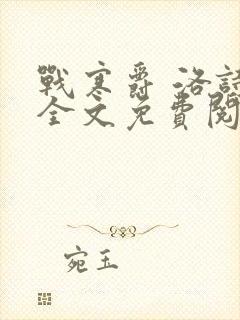 戰寒爵 洛詩
全文免費閱
宛玉